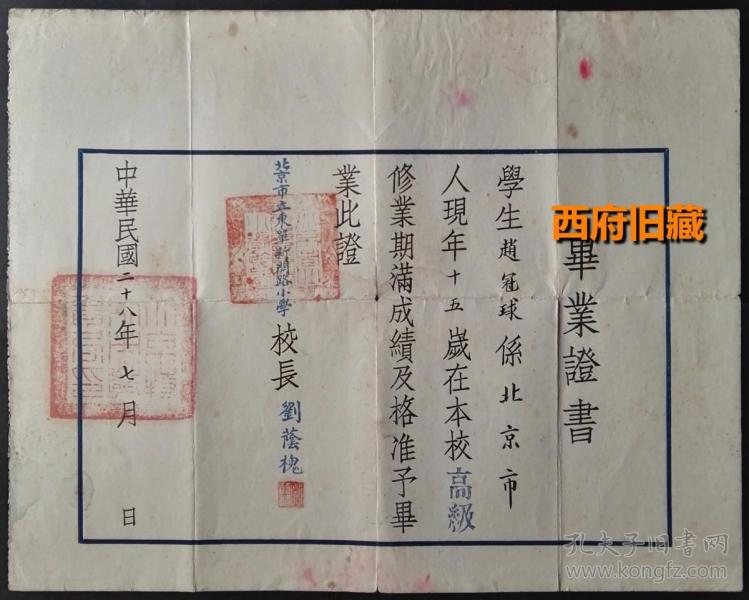 畢業證書
學生趙冠球係北京市
人現年十五歲在本校高級
修業期滿成績及格准予畢
業此證
北京市立東單新開路小學校長劉蔭槐
中華民國二十八年七月 日
西府旧藏
孔夫子旧书网
www.kongfz.com